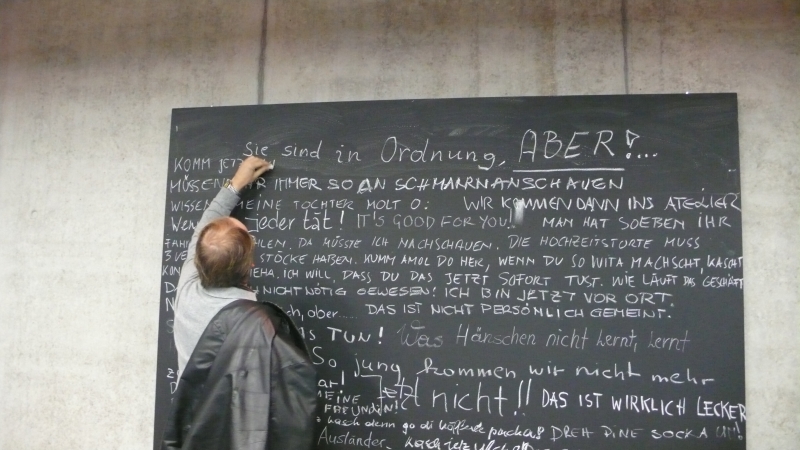 Sie sind in Ordnung, ABER!...
KOMM JETZT
MÜSSEN WIR IMMER SO AN SCHMARRN ANSCHAUEN
WISSEN MEINE TOCHTER MOLT O: WIR KOMMEN DANN INS ATELIER
Wenn jeder tät! IT'S GOOD FOR YOU! MAN HAT SOEBEN IHR
DA MÜSSTE ICH NACHSCHAUEN. DIE HOCHZEITSTORTE MUSS
STÖCKE HABEN. KUMM AMOL DO HER, WENN DU SO WITA MACHSCHT, KASCHT
ICH WILL, DASS DU DAS JETZT SOFORT TUST. WIE LÄUFT DAS GESCHÄFT
NICHT NÖTIG GEWESEN! ICH BIN JETZT VOR ORT.
ch, ober..... DAS IST NICHT PERSÖNLICH GEMEINT.
TUN! Was Hänschen nicht lernt, lernt
So jung kommen wir nicht mehr
Jetzt nicht!! DAS IST WIRKLICH LECKER
MEINE
FREUNDEN!
kasch denn go di DREH DINE SOCKA UM!
Ausländer. kasch jetz